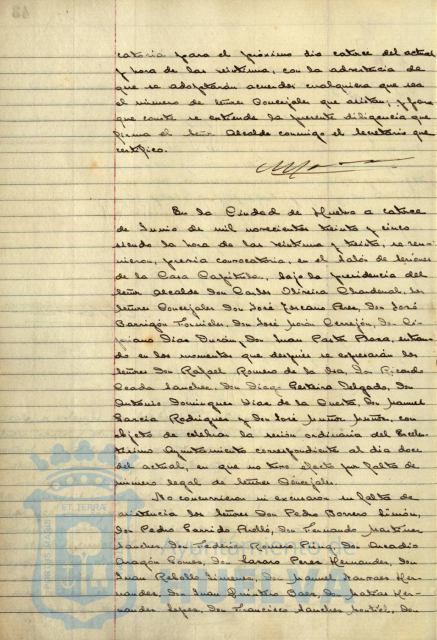 catoria para el próximo dia catorce del actual
y hora de las veintiuna, con la advertencia de
que se adoptarán acuerdos cualquiera que sea
el número de Señores Concejales que asistan; y para
que conste se extiende la presente diligencia que
firma el Señor Alcalde conmigo el Secretario que
certifico.
En la Ciudad de Huelva a catorce
de Junio de mil novecientos treinta y cinco
siendo la hora de las veintiuna y treinta, se reu-
nieron, previa convocatoria, en el Salón de Sesiones
de la Casa Capitular, bajo la presidencia del
Señor Alcalde Don Carlos Oliveira Chardenal, los
Señores Concejales Don José Toscano Pérez, Don José
Barrigón Fornieles, Don José Marín Cerrejón, Don Ci-
priano Diaz Durán, Don Juan Roza, entran-
do en los momentos que después se expresarán los
Señores Don Rafael Romero de la Osa, Don Ricardo
Sanchez, Don Diego Delgado, Don
Antonio Dominguez Diaz de la Cuesta, Don Manuel
Garcia Rodriguez y Don José Muñoz Muñoz, con
objeto de celebrar la sesión ordinaria del Excelen-
tísimo Ayuntamiento correspondiente al dia doce
del actual, en que no tuvo efecto por falta de
número legal de Señores Concejales.
No concurrieron ni excusaron su falta de
asistencia los Señores Don Pedro Borrero Limón,
Don Pedro Garrido Perelló, Don Fernando Martinez
Sanchez, Don Federico Romero Puig, Don Arcadio
Aragón Gomez, Don Lazaro Perez Hernandez, Don
Juan Rebollo Jimenez, Don Manuel Narvaez Her-
nandez, Don Juan Quintero Baez, Don Matias Her-
nandez Lopez, Don Francisco Sanchez Montiel, Don